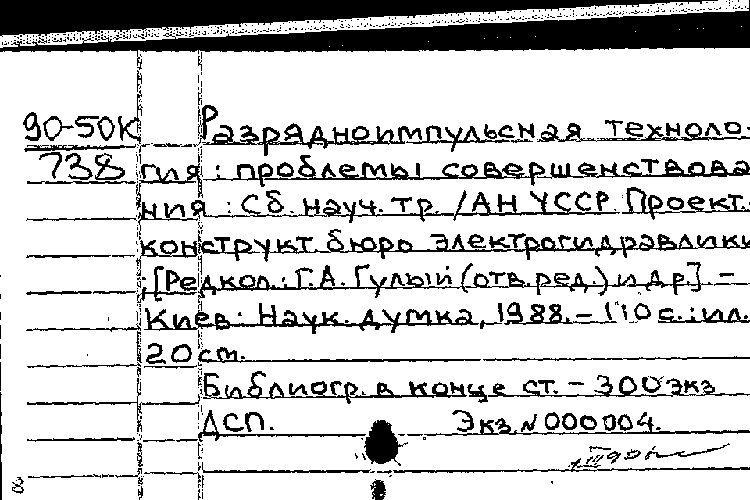 90-50К Разрядноимпульсная техноло
738 гия : проблемы совершенствова
ния : Сб. науч. тр. / АН УССР. Проект.
конструкт. бюро электрогидравлики
; [Редкол.: Г.А. Гулый (отв. ред.) и др.]. –
Киев: Наук. думка, 1988. – 110 с.: ил.
20 см.
Библиогр. в конце ст. – 300 экз
ДСП. Экз. N 000004.
8